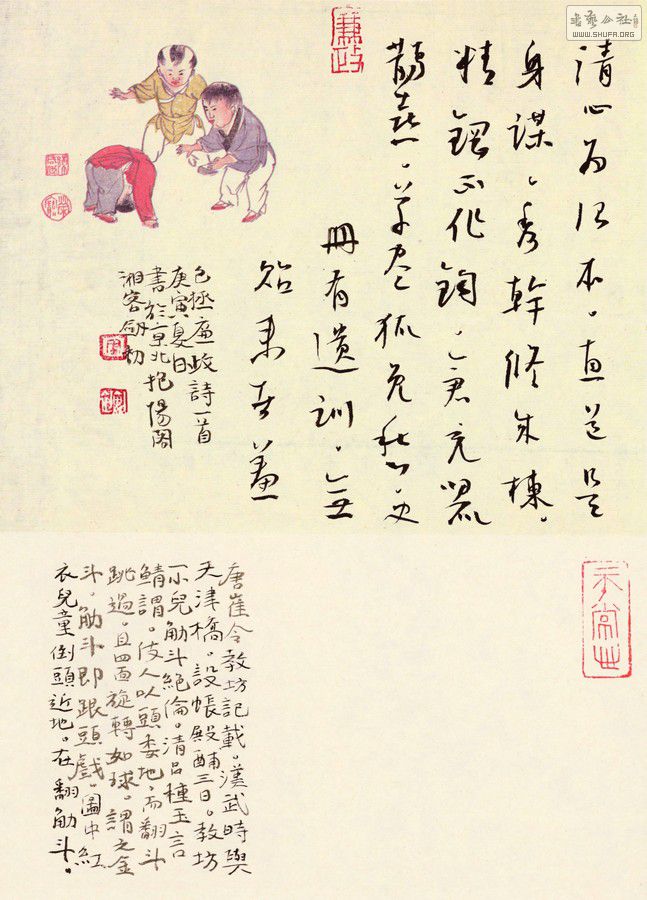 書藝公社
WWW.SHUFA.ORG
廉政
清心為治本。直道是
身謀。秀幹終成棟。
精鋼不作鉤。倉充鼠
鵲喜。草盡狐兔愁。史
冊有遺訓。無
貽來者羞
包拯廉政詩一首
庚寅夏日
書於京北抱陽閣
湘客劍初
唐崔令教坊記載。漢武時與
天津橋。設帳殿酺三日。教坊
一小兒觔斗絕倫。清吕種玉言
鯖謂。伎人以頭委地。而翻斗
跳過。且四面旋轉如球。謂之金
斗。觔斗即跟頭戲。圖中紅
衣兒童倒頭近地。在翻觔斗。